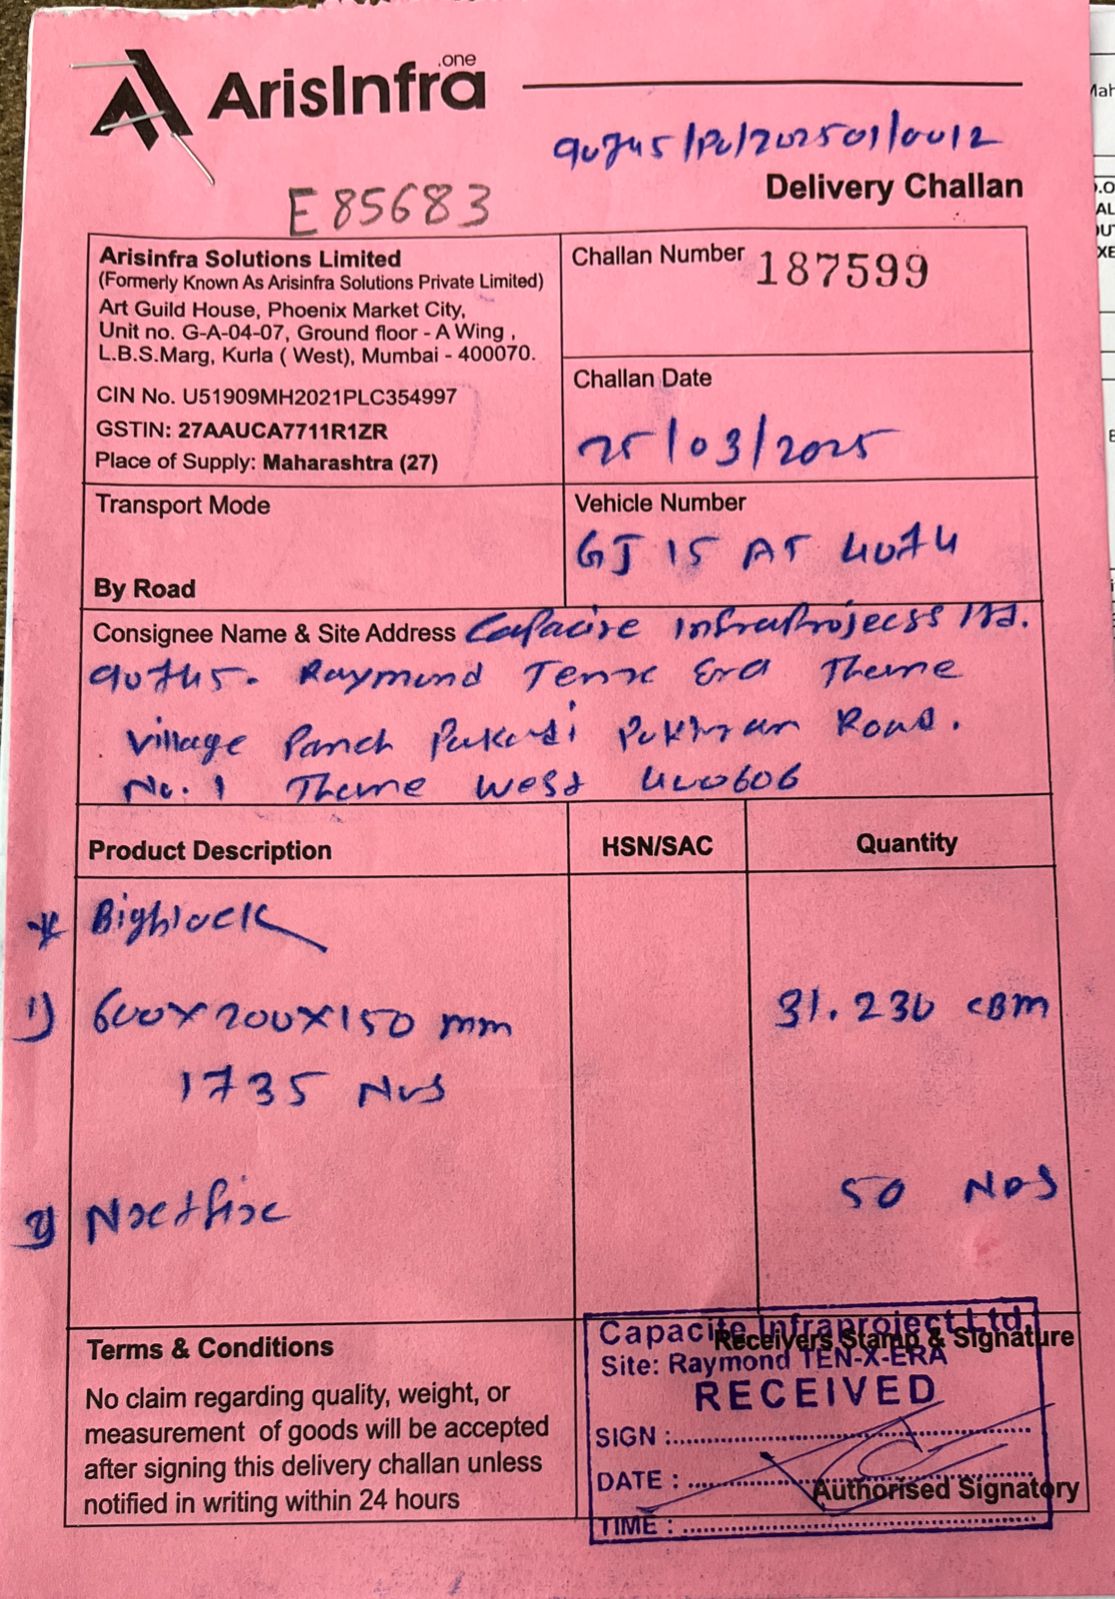 ArisInfra .one
90745/PO/202501/0012
Delivery Challan
E85683
Arisinfra Solutions Limited
(Formerly Known As Arisinfra Solutions Private Limited)
Art Guild House, Phoenix Market City,
Unit no. G-A-04-07, Ground floor - A Wing ,
L.B.S.Marg, Kurla ( West), Mumbai - 400070.
CIN No. U51909MH2021PLC354997
GSTIN: 27AAUCA7711R1ZR
Place of Supply: Maharashtra (27)
Challan Number 187599
Challan Date
25/03/2025
Transport Mode
By Road
Vehicle Number
GJ 15 AT 4074
Consignee Name & Site Address Capacite Infraprojects Ltd.
90745. Raymond Tenx Era Thane
Village Panch Pakadi Pokhran Road.
No. 1 Thane West 400606
Product Description HSN/SAC Quantity
* Bigblock
1) 600x200x150 mm 31.230 CBM
1735 Nos
2) Nxtfix 50 Nos
Terms & Conditions
No claim regarding quality, weight, or
measurement of goods will be accepted
after signing this delivery challan unless
notified in writing within 24 hours
Receivers Stamp & Signature
Capacite Infraproject Ltd.
Site: Raymond TEN-X-ERA
RECEIVED
SIGN :
DATE :
Authorised Signatory
TIME :